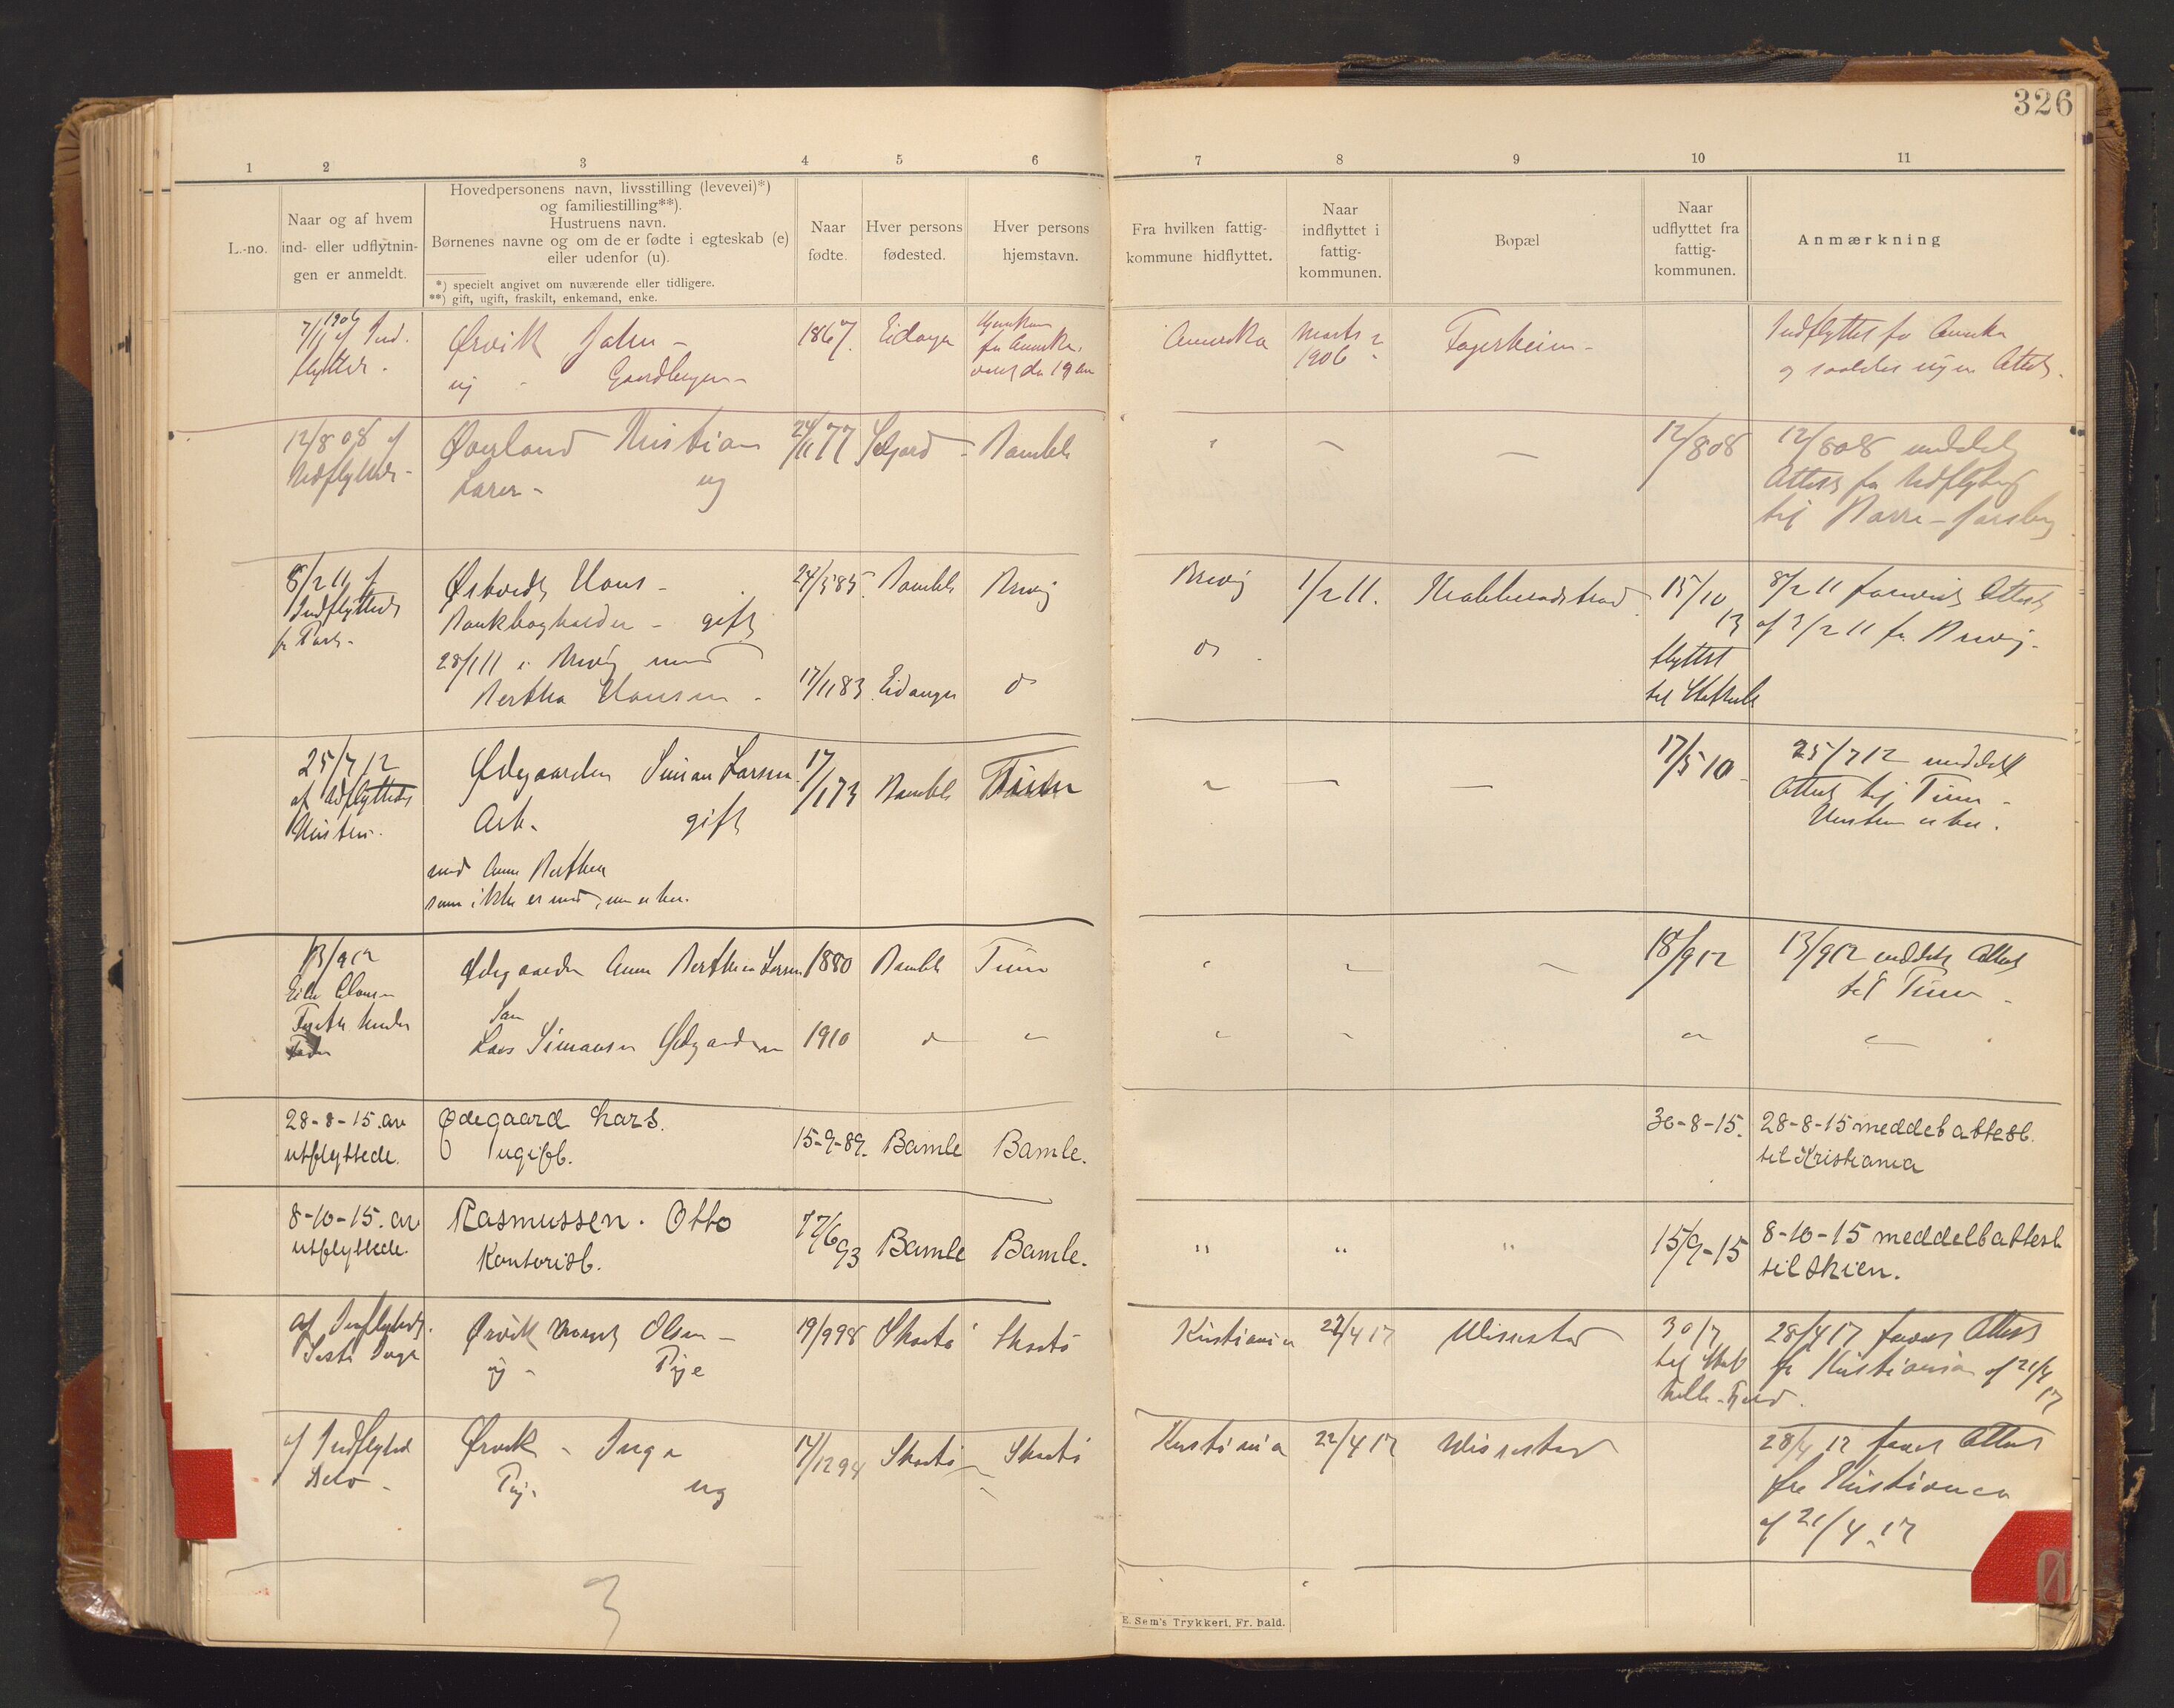 326
1 2 3 4 5 6 7 8 9 10 11
L.-no.
Naar og af hvem
ind- eller udflytnin-
gen er anmeldt.
Hovedpersonens navn, livsstilling (levevei)*)
og familiestilling**).
Hustruens navn.
Børnenes navne og om de er fødte i egteskab (e)
eller udenfor (u).
*) specielt angivet om nuværende eller tidligere.
**) gift, ugift, fraskilt, enkemand, enke.
Naar
fødte.
Hver persons
fødested.
Hver persons
hjemstavn.
Fra hvilken fattig-
kommune hidflyttet.
Naar
indflyttet i
fattig-
kommunen.
Bopæl
Naar
udflyttet fra
fattig-
kommunen.
Anmærkning
7/11 1906 af Ind.
flyttede.
Ørvik John -
ug - Gaardbruger -
1867.
Eidanger
fra Amerika
Amerika
Marts
1906
Fagerheim -
Indflyttet fra Amerika
og saaledes ingen Attest.
12/8 08 af
Udflyttede -
Øverland Kristian
Lærer - ug
24/11 77
Seljord -
Bamble
12/8 08
12/8 08 meddelt
Attest for Udflytning
til Nørre-Jarlsberg
8/2 11 af
Indflyttede
Østvedt Hans -
Bankbogholder - gift
28/1 11 i Brevig med
Bertha Hansen -
24/5 85.
Bamble
Brevig
17/11 83.
Eidanger
do
Brevig
do
1/2 11.
Krabberødstrand
15/10
13
flyttet
til Stathelle
8/2 11 forevist Attest
af 3/2 11 fra Brevig.
25/7 12
af Udflyttedes
Hustru.
Ødegaarden Simon Larsen
Arb. gift
med Anne Berthea
som ikke er med, men er her.
17/1 73
Bamble
Tinn
17/5 10
25/7 12 meddelt
Attest til Tinn -
Hustru er her.
13/9 12
Ødegaarden Anne Berthea Larsen
Søn
Lars Simonsen Ødegaarden
1880
Bamble
Tinn
1910
18/9 12
13/9 12 meddelt Attest
til Tinn -
28-8-15. av
utflyttede.
Ødegaard Lars.
ugift.
15-9-89.
Bamle
Bamle.
30-8-15.
28-8-15 meddelt attest.
til Kristiania
8-10-15. av
utflyttede.
Rasmussen. Otto
Kontorist.
17/6 93
Bamle
Bamle.
" " "
15/9-15
8-10-15 meddelt attest
til Skien.
af Indflyttede.
Ørvik Olsen -
ug - Pige
19/9 98
Skaatø
Skaatø
Kristiania
22/4 17
Wissestad
30/7
til Stat
helle
28/4 17 forevist Attest
fra Kristiania af 21/4
17
af Indflyttede
Ørvik - Inga
Pige ug
17/12 94
Skaatø
Skaatø
Kristiania
22/4 17
Wissestad
28/4 17 forevist Attest
fra Kristiania
af 21/4 17
3
E. Sem's Trykkeri, Fr. hald.
Ø